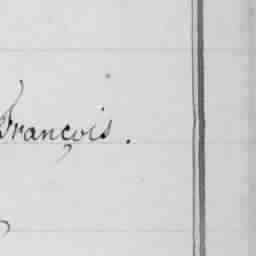 François.